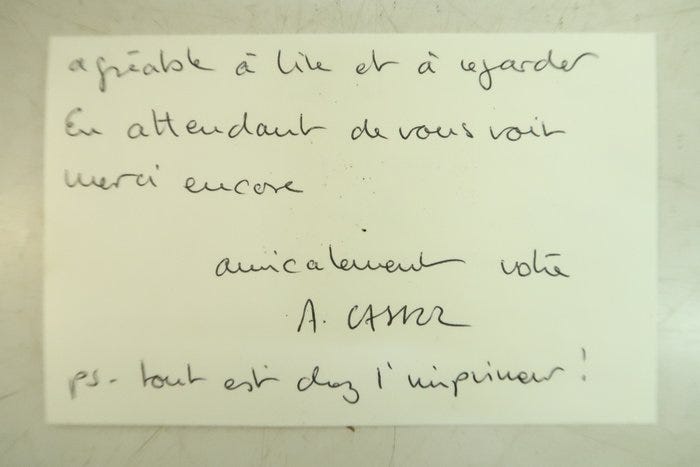 agréable à lire et à regarder
En attendant de vous voir
merci encore
amicalement votre
A.
ps - tout est chez l'imprimeur !